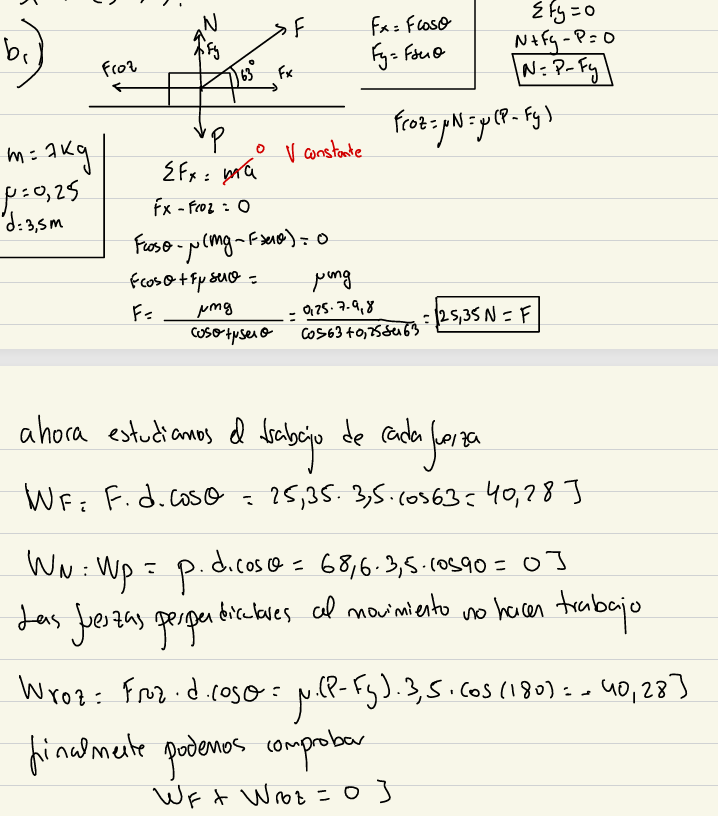 b.)
N
Fy
F
Froz
63°
Fx
P
Fx = Fcosθ
Fy = Fsenθ
ΣFy = 0
N + Fy - P = 0
N = P - Fy
Froz = μN = μ(P - Fy)
m = 7Kg
μ = 0,25
d = 3,5m
ΣFx = ma 0 V constante
Fx - Froz = 0
Fcosθ - μ(mg - Fsenθ) = 0
Fcosθ + Fμsenθ = μmg
F = μmg / cosθ + μsenθ = 0,25·7·9,8 / cos63 + 0,25sen63 = 25,35N = F
ahora estudiamos el trabajo de cada fuerza
WF = F·d·cosθ = 25,35·3,5·cos63 = 40,28J
WN = Wp = p·d·cosθ = 68,6·3,5·cos90 = 0J
Las fuerzas perpendiculares al movimiento no hacen trabajo
Wroz = Froz·d·cosθ = μ·(P - Fy)·3,5·cos(180) = -40,28J
finalmente podemos comprobar
WF + Wroz = 0J